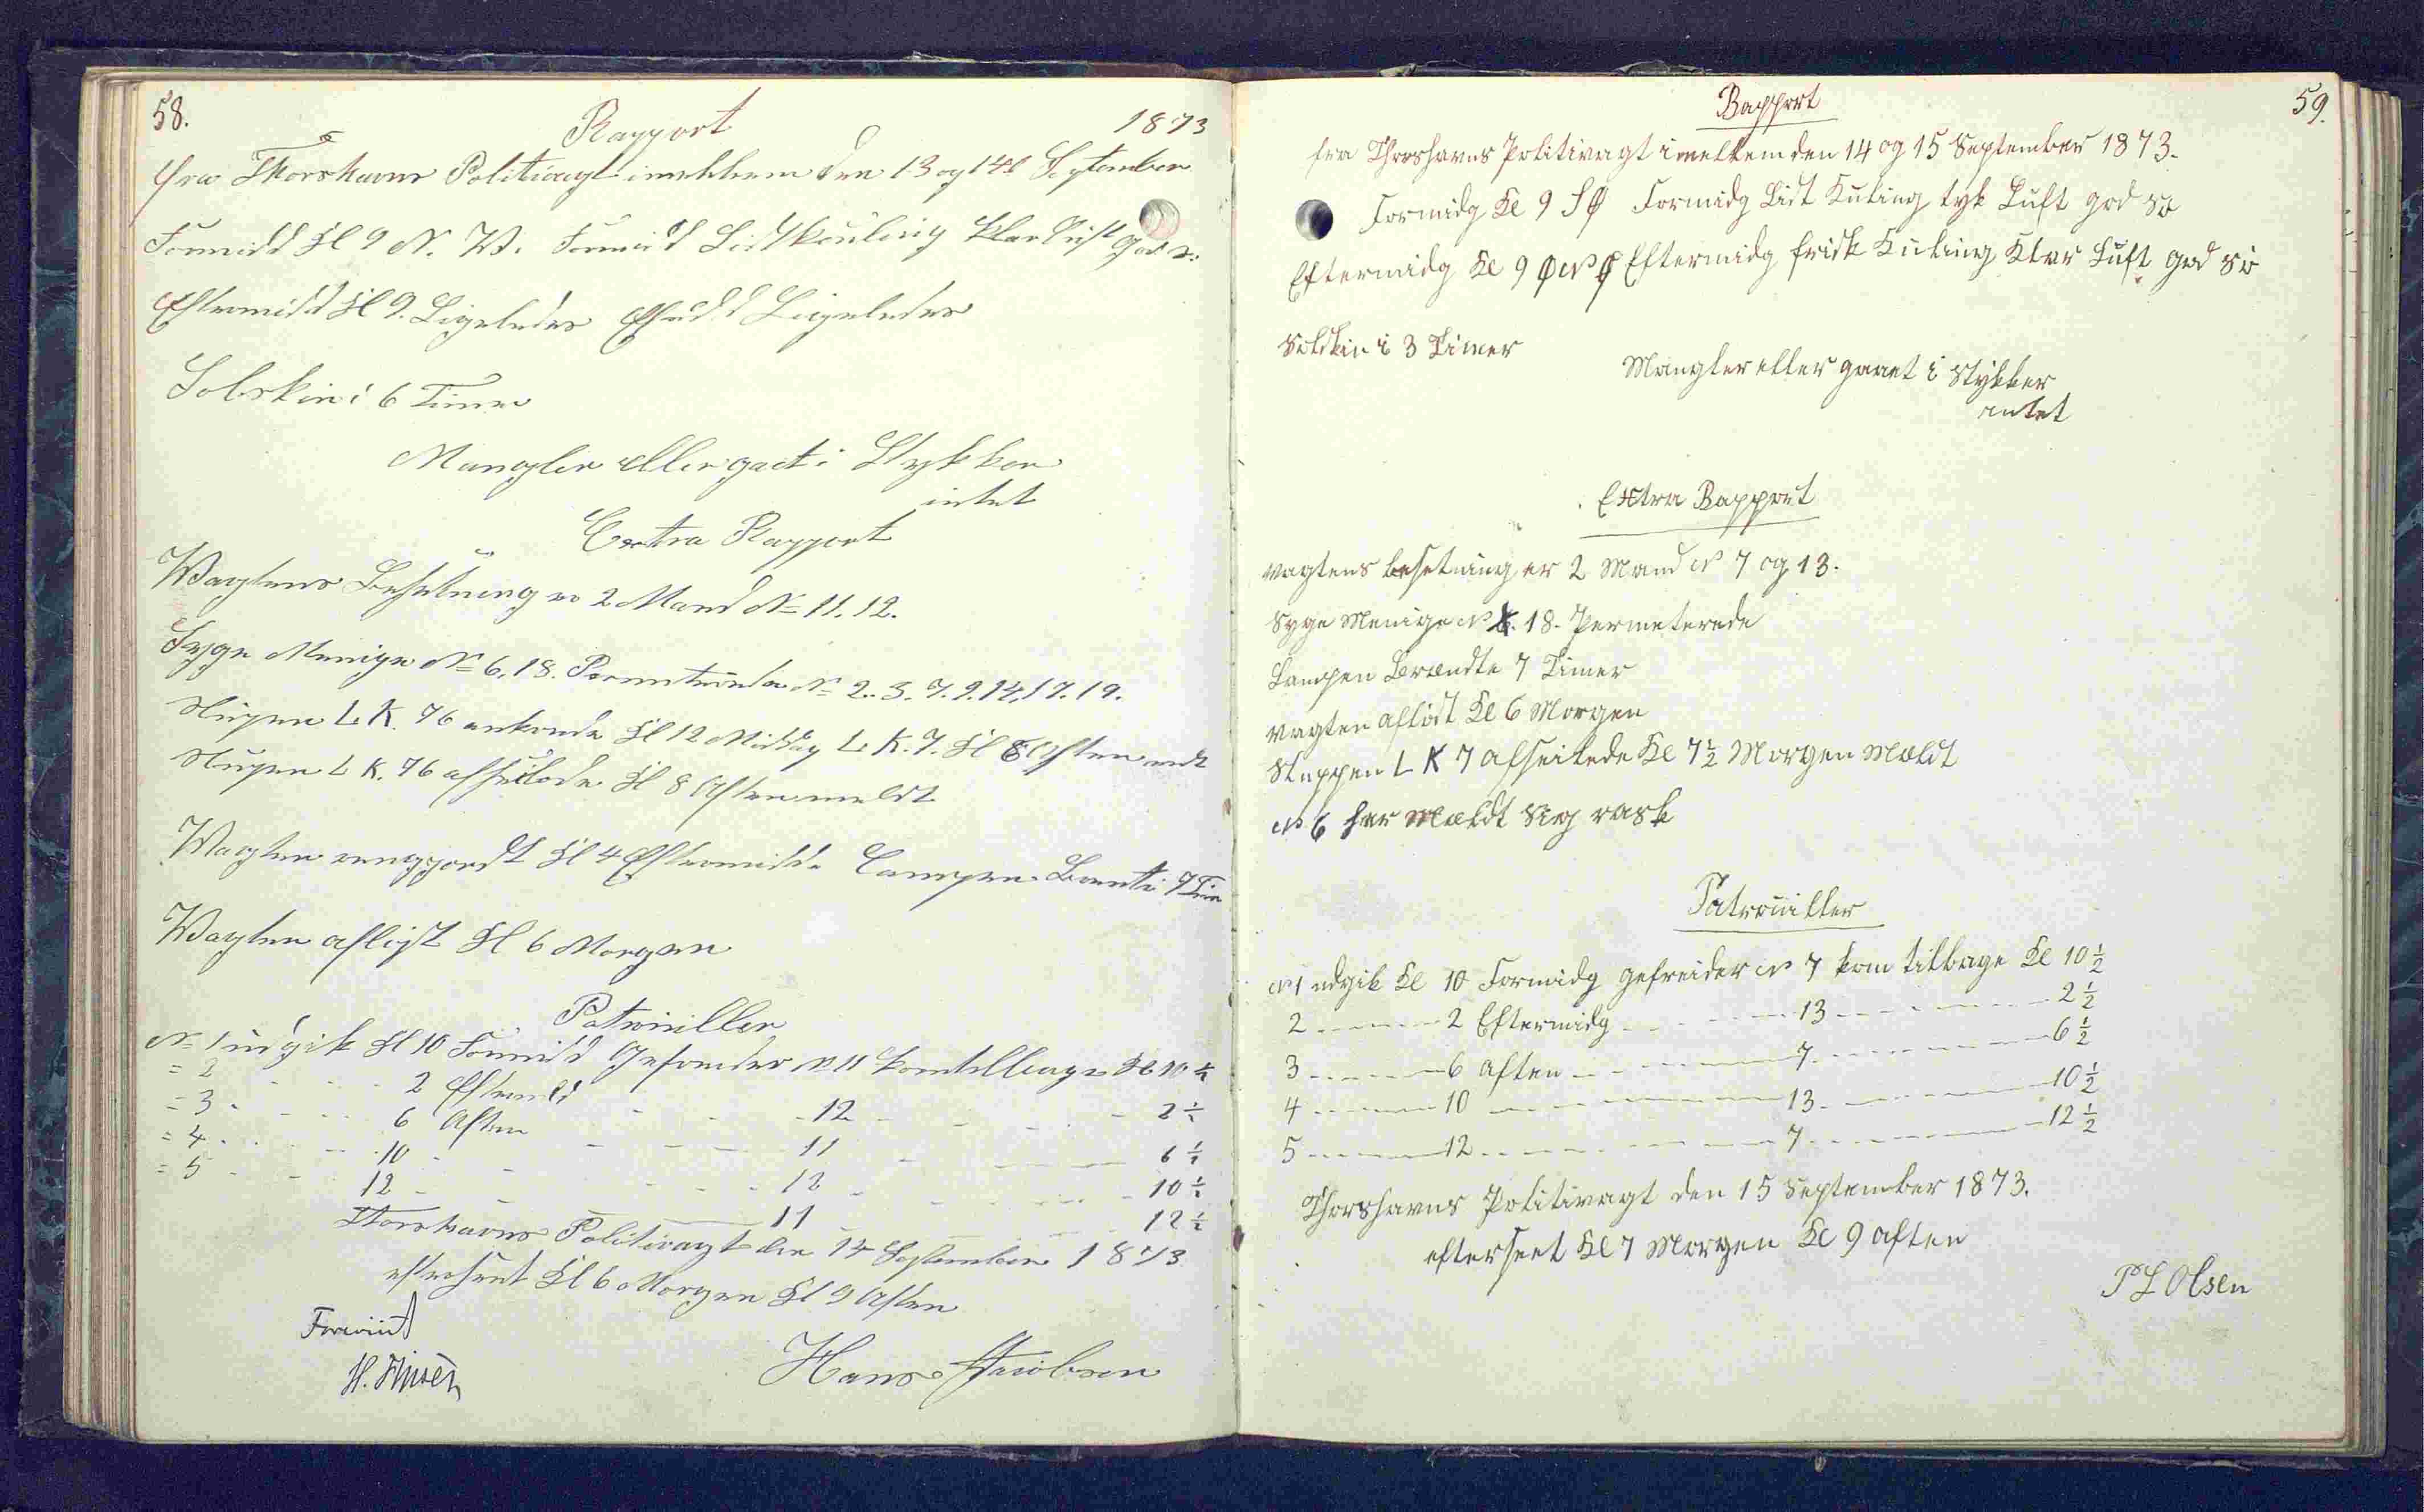 58.
Rapport
1873
fra Thorshavns Politivagt imellem den 13 og 14de September
Formidd Kl 9 N. W. Formidd Lidt kuling klar Luft god S.
Eftermidd Kl 9. Ligeledes Efmdd Ligeledes
Solskin i 6 Timer
Mangler eller gaet i Stykker
intet
Extra Rapport
Wagtens Besetning er 2 Mand No 11. 12.
Syge Menige No 6. 18. Permeterede No 2. 3. 7. 9. 14. 17. 19.
Slupen L. K. 76 ankomde Kl 12 Middag L. K. 7. Kl 6 Aften
Slupen L K. 76 afseilede Kl 8 Aften meldt
Wagten rengjordt Kl 4 Eftermidd. Lampen Brænte 7 Tim
Wagten afløst Kl 6 Morgen
Patrouiller
No 1 udgik Kl 10 Formidd Gefreider N 11 kom tilbage Kl 10 ½
= 2 - - - 2 Eftermdd - - - 12 - - - 2 ½
= 3 - - - 6 Aften - - - 11 - - - 6 ½
= 4 - - - 10 - - - 12 - - - 10 ½
= 5 - - - 12 - - - 11 - - - 12 ½
Thorshavns Politivagt den 14 September 1873
efterseet Kl 6 Morgen Kl 9 Aften
Forevist
Hans Jacobsen
59.
Rapport
fra Thorshavns Politivagt imellem den 14 og 15 September 1873.
Formidg Kl 9 SØ Formidg Lidt Kuling tyk Luft god Sø
Eftermidg Kl 9 ØNØ Eftermidg frisk Kuling Klar Luft god Sø
Solskin i 3 Timer
Mangler eller gaaet i Stykker
intet
Extra Rapport
vagtens besetning er 2 Mand No 7 og 13.
Syge Menige No 18. Permeterede
Lampen Brændte 7 Timer
vagten afløst Kl 6 Morgen
Sluppen L K 7 afseilede Kl 7½ Morgen Mældt
No 6 har Mældt sig rask
Patrouiller
No 1 udgik Kl 10 Formidg gefreider No 7 kom tilbage Kl 10 ½
2 - - - 2 Eftermidg - - - 13 - - - 2 ½
3 - - - 6 Aften - - - 7 - - - 6 ½
4 - - - 10 - - - 13 - - - 10 ½
5 - - - 12 - - - 7 - - - 12 ½
Thorshavns Politivagt den 15 September 1873.
efterseet Kl 7 Morgen Kl 9 aften
P L Olsen